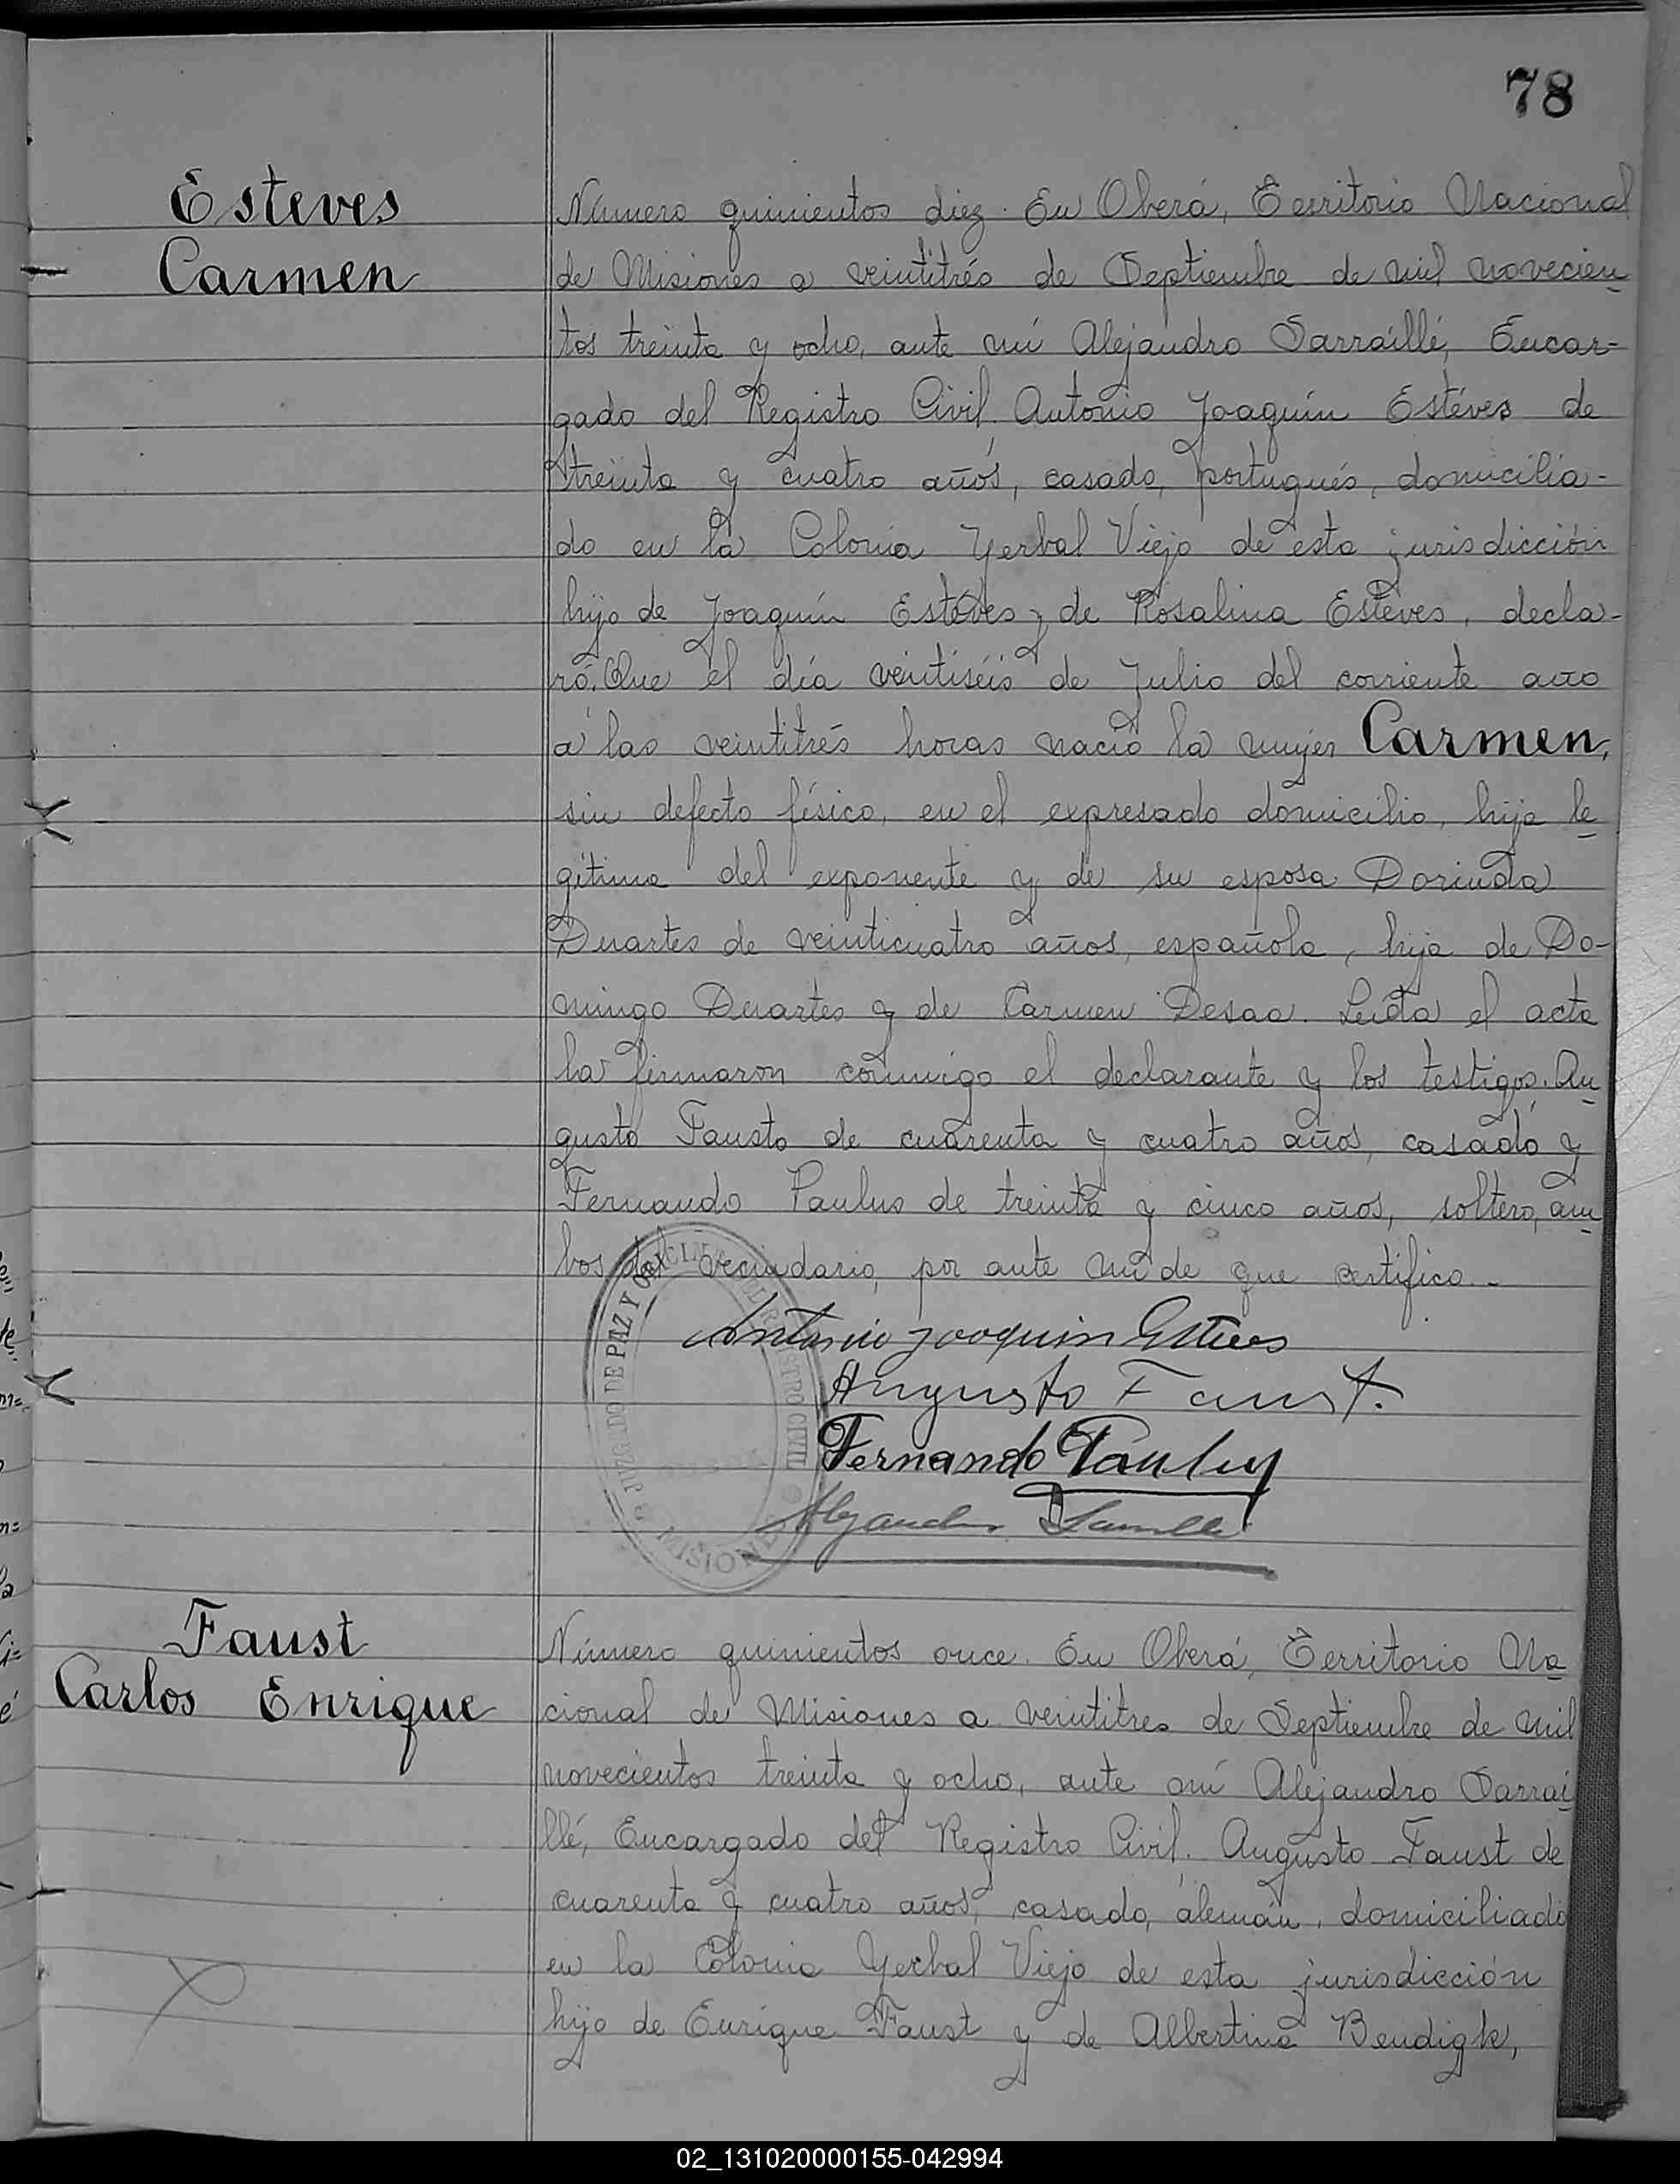 78
Esteves
Carmen
Número quinientos diez. En Oberá, Territorio Nacional
de Misiones a veintitrés de Septiembre de mil novecien
tos treinta y ocho, ante mí Alejandro Sarraillé, Encar-
gado del Registro Civil. Antonio Joaquín Estéves de
treinta y cuatro años, casado, portugués, domicilia-
do en la Colonia Yerbal Viejo de esta jurisdicción
hijo de Joaquín Estéves y de Rosalina Esteves, decla-
ró: Que el día veintiséis de Julio del corriente año
a las veintitrés horas nació la mujer Carmen,
sin defecto físico, en el expresado domicilio, hija le
gítima del exponente y de su esposa Dorinda
Duartes de veinticuatro años, española, hija de Do-
mingo Duartes y de Carmen Desaa. Leída el acta
la firmaron conmigo el declarante y los testigos. Au
gusto Fausto de cuarenta y cuatro años, casado y
Fernando Paulus de treinta y cinco años, soltero, am
bos del vecindario, por ante mí de que certifico.-
Antonio Joaquin Esteves
Augusto Faust.
Fernando Pauluy
Alejandro Sarraille
JUZGADO DE PAZ Y OFICINA DEL REGISTRO CIVIL
MISIONES
Faust
Carlos Enrique
Número quinientos once. En Oberá, Territorio Na
cional de Misiones a veintitres de Septiembre de mil
novecientos treinta y ocho, ante mí Alejandro Sarrai
llé, Encargado del Registro Civil. Augusto Faust de
cuarenta y cuatro años, casado, alemán, domiciliado
en la Colonia Yerbal Viejo de esta jurisdicción
hijo de Enrique Faust y de Albertina Bendigk,
02_131020000155-042994